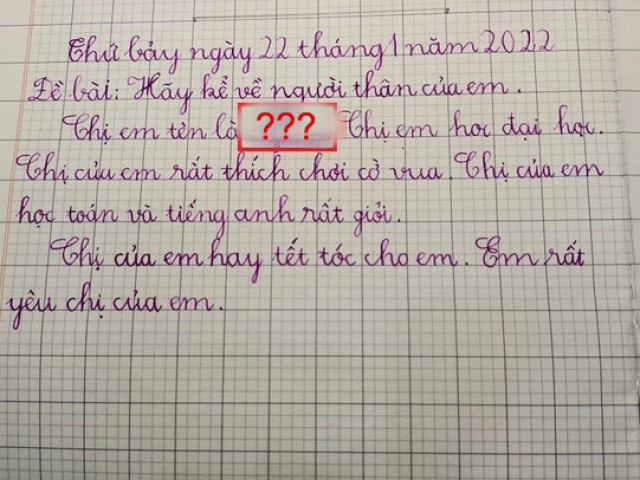 Thứ bảy ngày 22 tháng 1 năm 2022
Đề bài: Hãy kể về người thân của em.
Chị em tên là ??? Chị em học đại học.
Chị của em rất thích chơi cờ vua. Chị của em
học toán và tiếng anh rất giỏi.
Chị của em hay tết tóc cho em. Em rất
yêu chị của em.